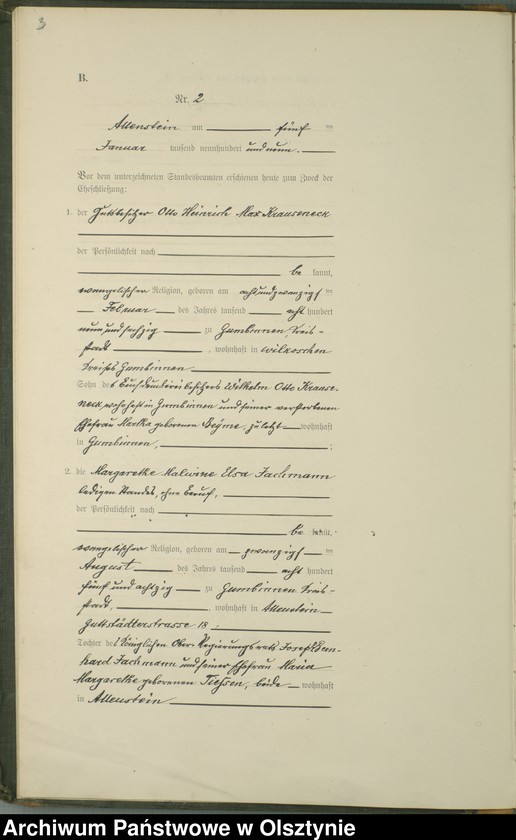 3
B.
Nr. 2
Allenstein am fünf ten
Januar tausend neunhundert und neun.
Vor dem unterzeichneten Standesbeamten erschienen heute zum Zweck der
Eheschließung:
1. der Gutsbesitzer Otto Heinrich Max Krauseneck
der Persönlichkeit nach
be kannt,
evangelischer Religion, geboren am achtundzwanzigsten
Februar des Jahres tausend acht hundert
neunundsechzig zu Gumbinnen, Kreis-
stadt , wohnhaft in
Kreises Gumbinnen
Sohn des Buchdruckereibesitzers Wilhelm Otto Krause-
neck, wohnhaft in Gumbinnen und seiner verstorbenen
Ehefrau Martha geborenen zuletzt wohnhaft
in Gumbinnen, ;
2. die Margarethe Malwine Elsa Jachmann
ledigen Standes, ohne Beruf,
der Persönlichkeit nach
be kannt,
evangelischer Religion, geboren am zwanzigsten
August des Jahres tausend acht hundert
fünf und achtzig zu Gumbinnen Kreis-
stadt, , wohnhaft in Allenstein
Guttstädterstrasse 18 ;
Tochter des Königlichen Ober-Regierungsrats Josef
hard Jachmann und seiner Ehefrau Maria
Margarethe geborenen beide wohnhaft
in Allenstein
Archiwum Państwowe w Olsztynie